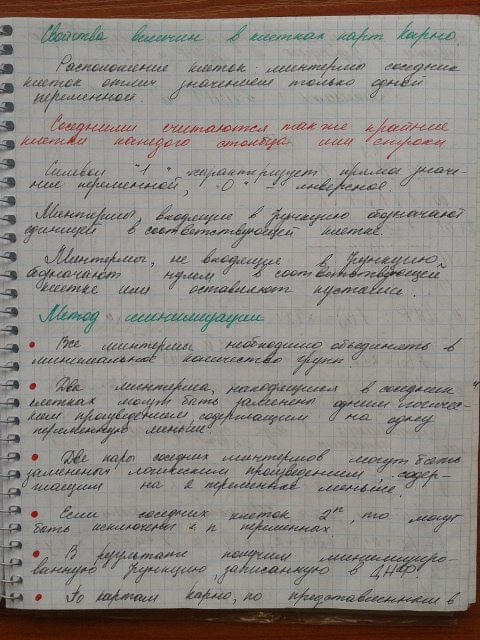 Свойства величин в клетках карт Карно.
Расположение клеток: минтермы соседних
клеток отлич. значением только одной
переменной
Соседними считаются также крайние
клетки каждого столбца или строки
Символ "1" характеризует прямое значе-
ние переменной, "0" инверсное.
Минтермы, входящие в функцию обозначают
единицей в соответствующей клетке.
Минтермы, не входящие в функцию,
обозначают нулем в соответствующей
клетке или оставляют пустыми.
Метод минимизации
• Все минтермы необходимо объединять в
минимальное количество групп.
• Два минтерма, находящиеся в соседних
клетках могут быть заменены одним логичес-
ким произведением содержащим на одну
переменную меньше.
• Две пары соседних минтермов могут быть
заменены логическим произведением, содер-
жащим на 2 переменные меньше.
• Если соседних клеток 2ⁿ, то могут
быть исключены n переменных.
• В результате получим минимизиро-
ванную функцию, записанную в ДНФ.
• По картам Карно, по представленным в